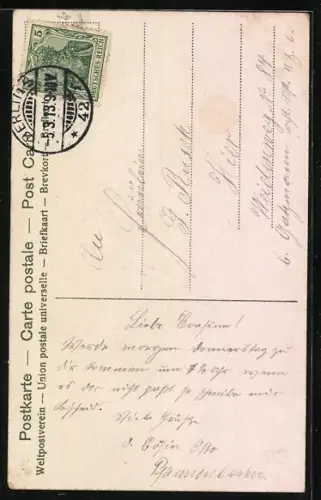 Postkarte — Carte postale — Post Ca
Weltpostverein — Union postale universelle — Briefkaart — Brevkort
5
DEUTSCHES REICH
BERLIN
5.3.13.9
42
An
Fräulein
J.
Hier
84
b.
Liebe Cousine!
Werde morgen Donnerstag zu
dir kommen um 7½ Uhr wenn
es dir nicht paßt so schreibe mir
Bescheid.
Viele Grüße
d. Cousin Otto